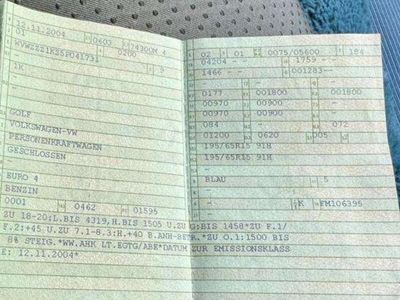 12.11.2004 0603 74300M 4
01
WVWZZZ1KZ5P041731 0200
1K 5
GOLF
VOLKSWAGEN-VW
PERSONENKRAFTWAGEN
GESCHLOSSEN
EURO 4
BENZIN
0001 0462 01595
02 01 0075/05600 184
04204 - - 1759 - -
1466 - - 001283--
-
0177 001800 001800
00970 00900 -
00970 00900 -
084 - 072
01200 0620 005
195/65R15 91H
195/65R15 91H
-
-
BLAU - 5
-
- K FM106395
ZU 18-20:L.BIS 4319,H.BIS 1505 U.ZU G:BIS 1458*ZU F.1/
F.2:+45 U.ZU 7.1-8.3:H.+40 B.ANH-BETR.*ZU O.1:1500 BIS
8% STEIG.*WW.AHK LT.EGTG/ABE*DATUM ZUR EMISSIONSKLASS
E: 12.11.2004*